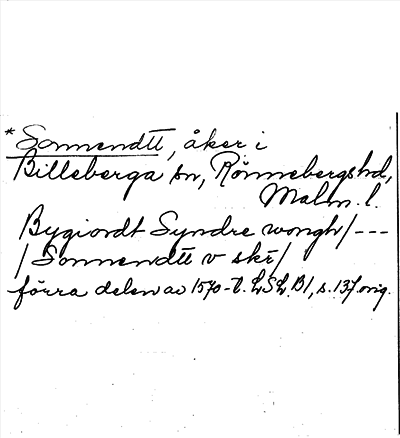 * Sonnendtt, åker i
Billeberga sn, Rönnebergs hd,
Malm. l.
Bygiordt Syndre wongh / ---
/ Sonnendtt v skr /
förra delen av 1570-t. LSL BI, s. 137 orig.